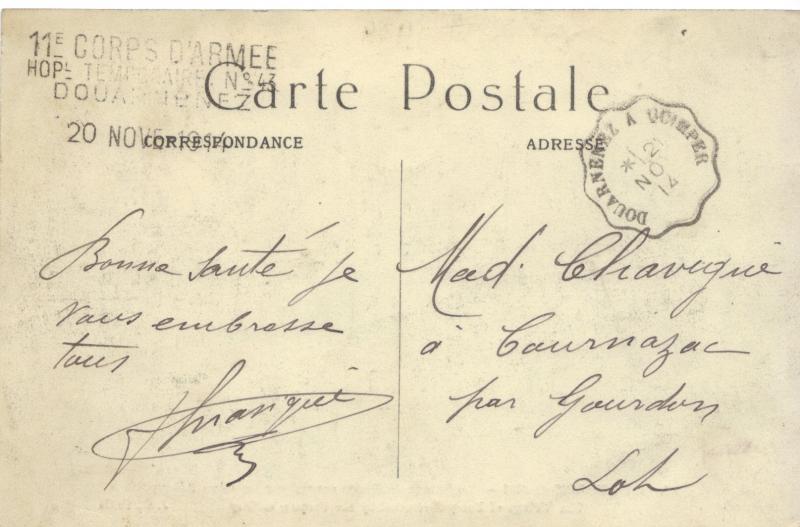 11E CORPS D'ARMEE
HOPL TEMPORAIRE. No 43
DOUARNENEZ
20 NOVE 1914
Carte Postale
CORRESPONDANCE
ADRESSE
DOUARNENEZ A QUIMPER
* 1
21
NO
14
Bonne santé je
vous embrasse
tous
Mad. Chavignié
à Cournazac
par Gourdon
Lot